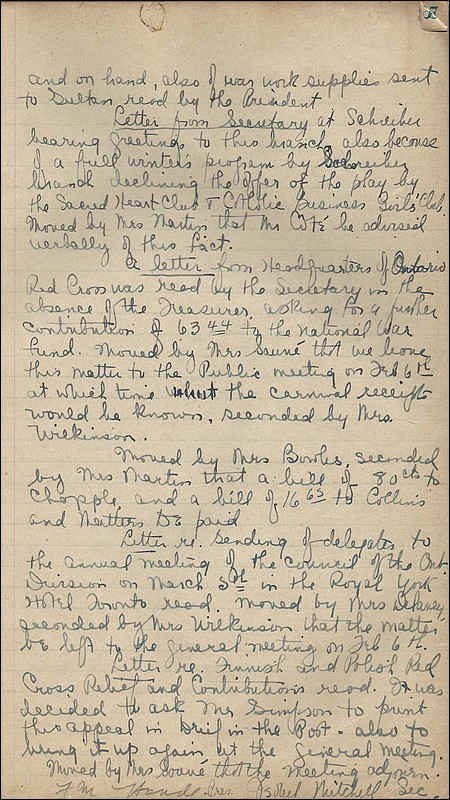 and on hand, also of war work supplies sent
to Sultan read by the President
Letter from Secretary at Schreiber
bearing greetings to this branch, also because
of a full winter's program by Schreiber
branch declining the offer of the play by
the Sacred Heart Club & Catholic Business Girls' Club.
Moved by Mrs Martin that Mr Coté be advised
verbally of this fact.
A letter from Headquarters of Ontario
Red Cross was read by the Secretary in the
absence of the Treasurer, asking for a further
contribution of 6344 to the national war
fund. Moved by Mrs Sauvé that we leave
this matter to the Public meeting on Feb 6th
at which time the carnival receipts
would be known, seconded by Mrs.
Wilkinson.
Moved by Mrs Bowles, seconded
by Mrs Martin that a bill of 80cts to
Chapple, and a bill of 16 65 to Collins
and Natters be paid
Letter re. sending of delegates to
the annual meeting of the council of the Ont.
Division on March 5th in the Royal York
Hotel Toronto read. Moved by Mrs Delaney,
seconded by Mrs Wilkinson that the matter
be left to the general meeting on Feb 6th.
Letter re. Finnish and Polish Red
Cross Relief and Contributions read. It was
decided to ask Mr Simpson to print
this appeal in brief in the Post - also to
bring it up again at the general meeting.
Moved by Mrs Sauvé that the meeting adjourn.
Pres. Isobel Mitchell Sec.